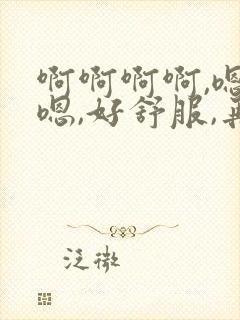 啊啊啊啊,嗯
嗯,好舒服,再
泛微